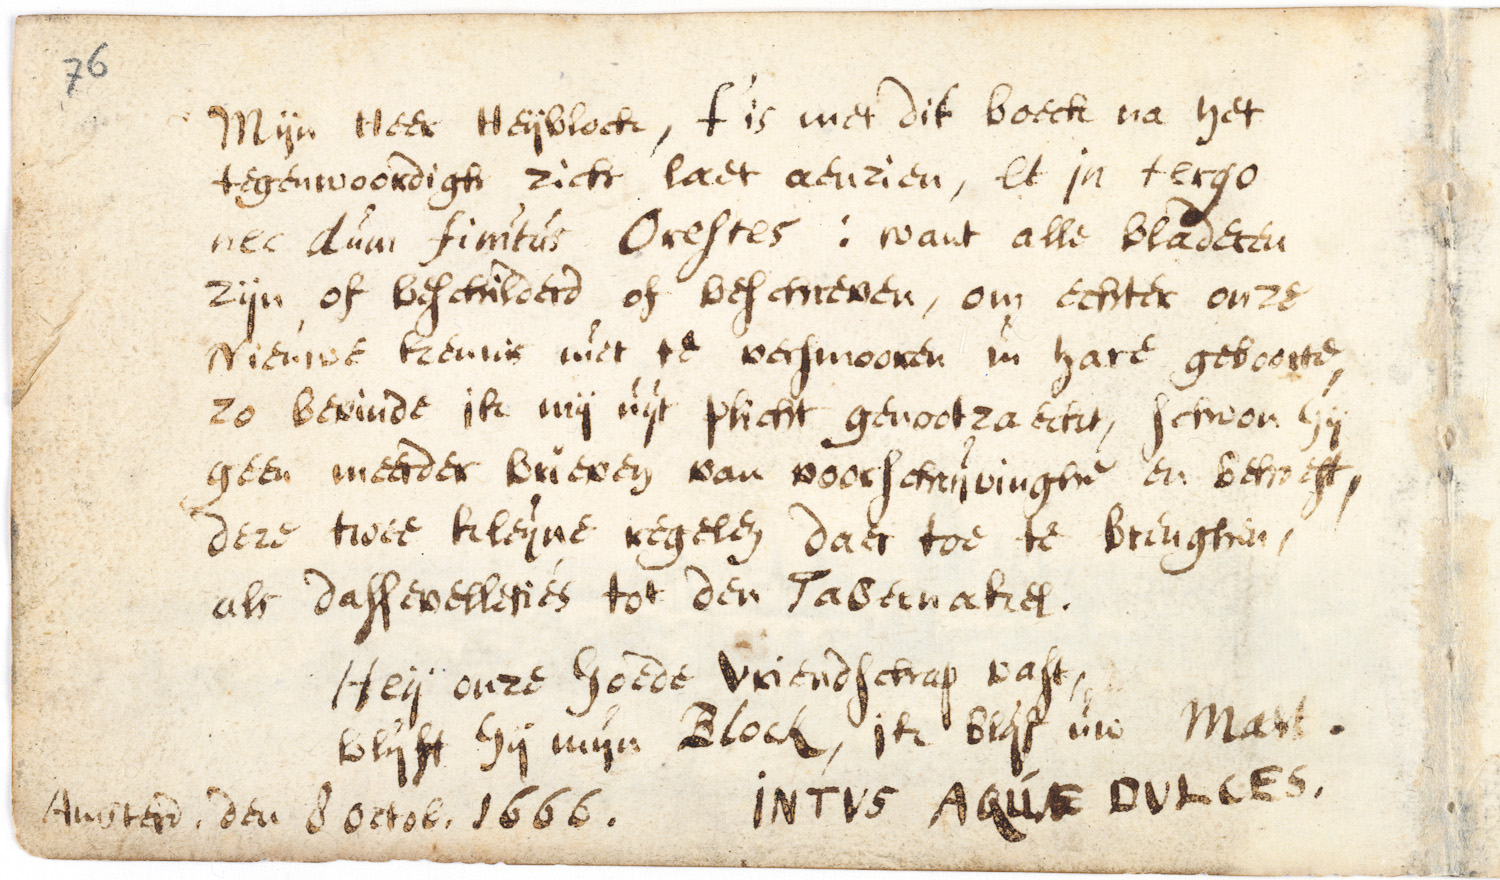 76
Mijn Heer Heijblock, t'is met dit boeck na het
tegenwoordigh zicht laet aenzien, Et in tergo
nec dum finitus Orestes : want alle bladeren
zijn of beschilderd of beschreven, om echter onze
Nieuwe kennis niet te versmooren in hare geboorte,
zo bevinde ik mij uijt plicht genootzaeckt, schoon gij
geen meerder brieven van voorschrijvinghe en behoeft,
deze twee kleijne regelen daer toe te brenghen,
als dassevelleties tot den Tabernakel.
Heij onze goede Vriendschap vast,
blijft gij mijn Block, ik blijf uw Mast.
Amsterd. den 8 octob. 1666.
INTVS AQUÆ DULCES.